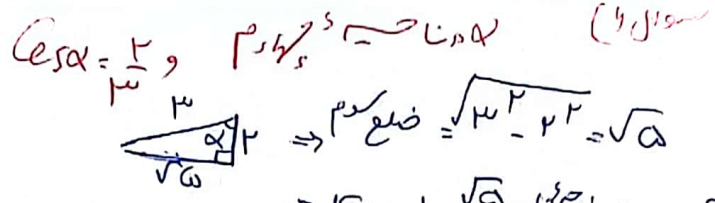 سوال ۱) α در ناحیه چهارم و Cosα = ۲/۳
۳ α ۲ √۵ ⇒ ضلع سوم = √۳^۲ - ۲^۲ = √۵